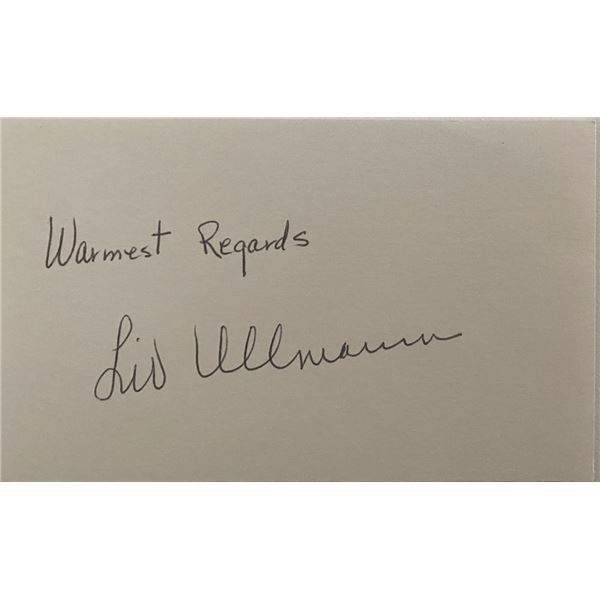 Warmest Regards
Liv Ullmann